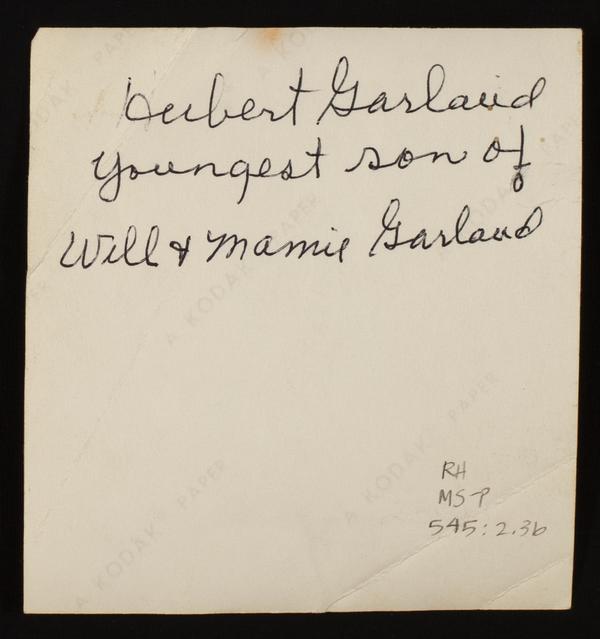 Hubert Garland
Youngest son of
Will & Mamie Garland
A KODAK PAPER
A KODAK PAPER
A KODAK PAPER
RH
MS-P
545:2.36